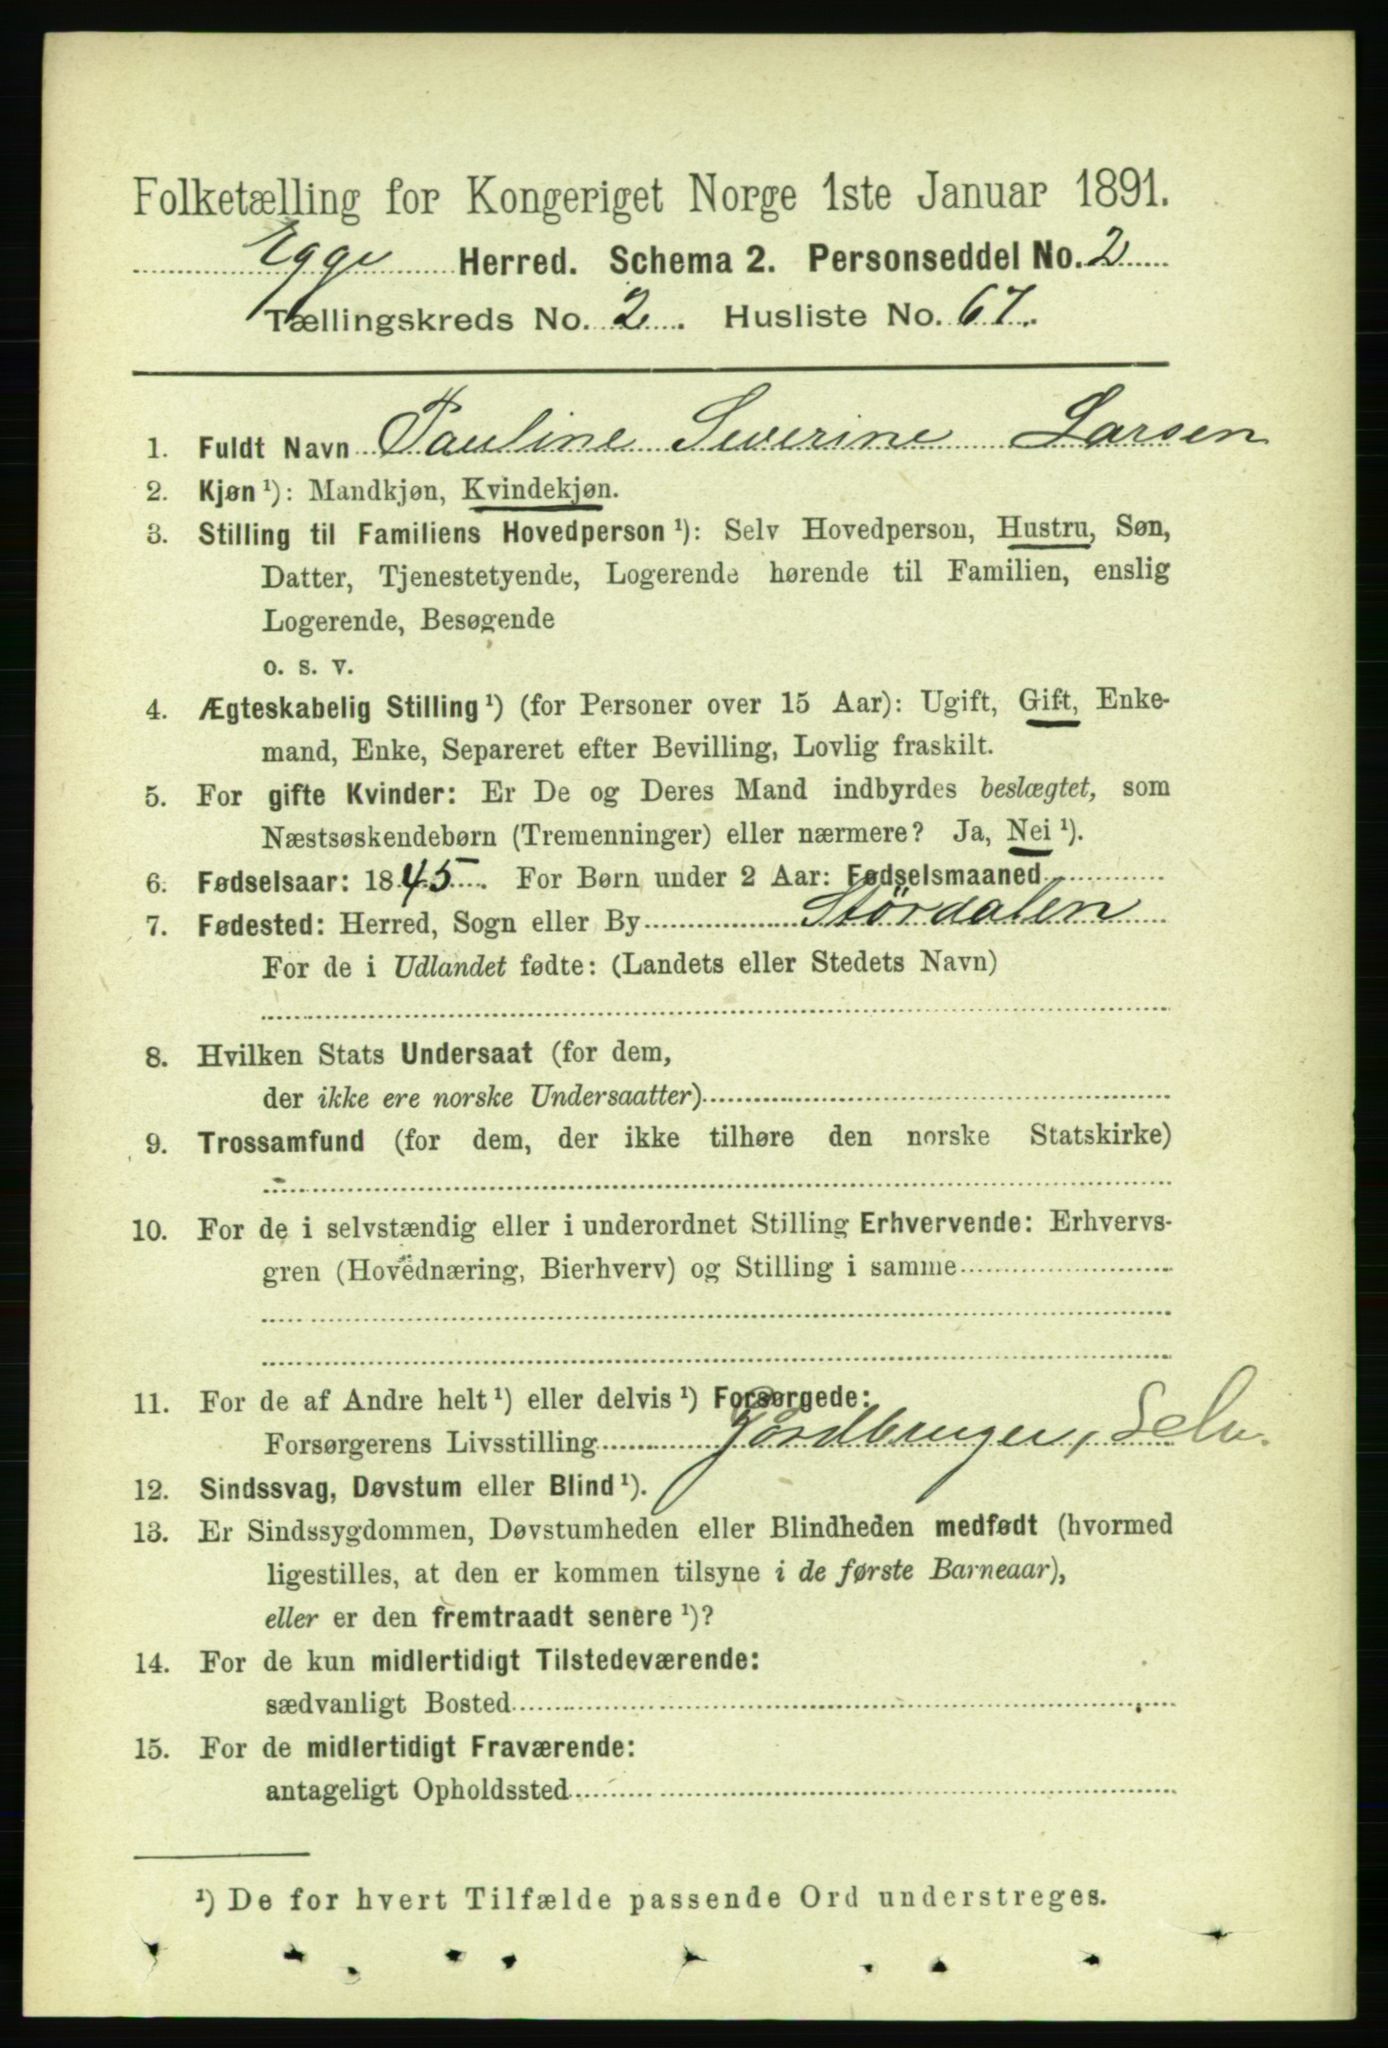 Folketælling for Kongeriget Norge 1ste Januar 1891.
Egge Herred. Schema 2. Personseddel No. 2
Tællingskreds No. 2. Husliste No. 67.
1. Fuldt Navn Pauline Severine Larsen
2. Kjøn ¹): Mandkjøn, Kvindekjøn.
3. Stilling til Familiens Hovedperson ¹): Selv Hovedperson, Hustru, Søn,
Datter, Tjenestetyende, Logerende hørende til Familien, enslig
Logerende, Besøgende
o. s. v.
4. Ægteskabelig Stilling ¹) (for Personer over 15 Aar): Ugift, Gift, Enke-
mand, Enke, Separeret efter Bevilling, Lovlig fraskilt.
5. For gifte Kvinder: Er De og Deres Mand indbyrdes beslægtet, som
Næstsøskendebørn (Tremenninger) eller nærmere? Ja, Nei ¹).
6. Fødselsaar: 1845. For Børn under 2 Aar: Fødselsmaaned
7. Fødested: Herred, Sogn eller By Størdalen
For de i Udlandet fødte: (Landets eller Stedets Navn)
8. Hvilken Stats Undersaat (for dem,
der ikke ere norske Undersaatter)
9. Trossamfund (for dem, der ikke tilhøre den norske Statskirke)
10. For de i selvstændig eller i underordnet Stilling Erhvervende: Erhvervs-
gren (Hovednæring, Bierhverv) og Stilling i samme
11. For de af Andre helt ¹) eller delvis ¹) Forsørgede:
Forsørgerens Livsstilling Jordbruger, Selv.
12. Sindssvag, Døvstum eller Blind ¹).
13. Er Sindssygdommen, Døvstumheden eller Blindheden medfødt (hvormed
ligestilles, at den er kommen tilsyne i de første Barneaar),
eller er den fremtraadt senere ¹)?
14. For de kun midlertidigt Tilstedeværende:
sædvanligt Bosted
15. For de midlertidigt Fraværende:
antageligt Opholdssted
¹) De for hvert Tilfælde passende Ord understreges.